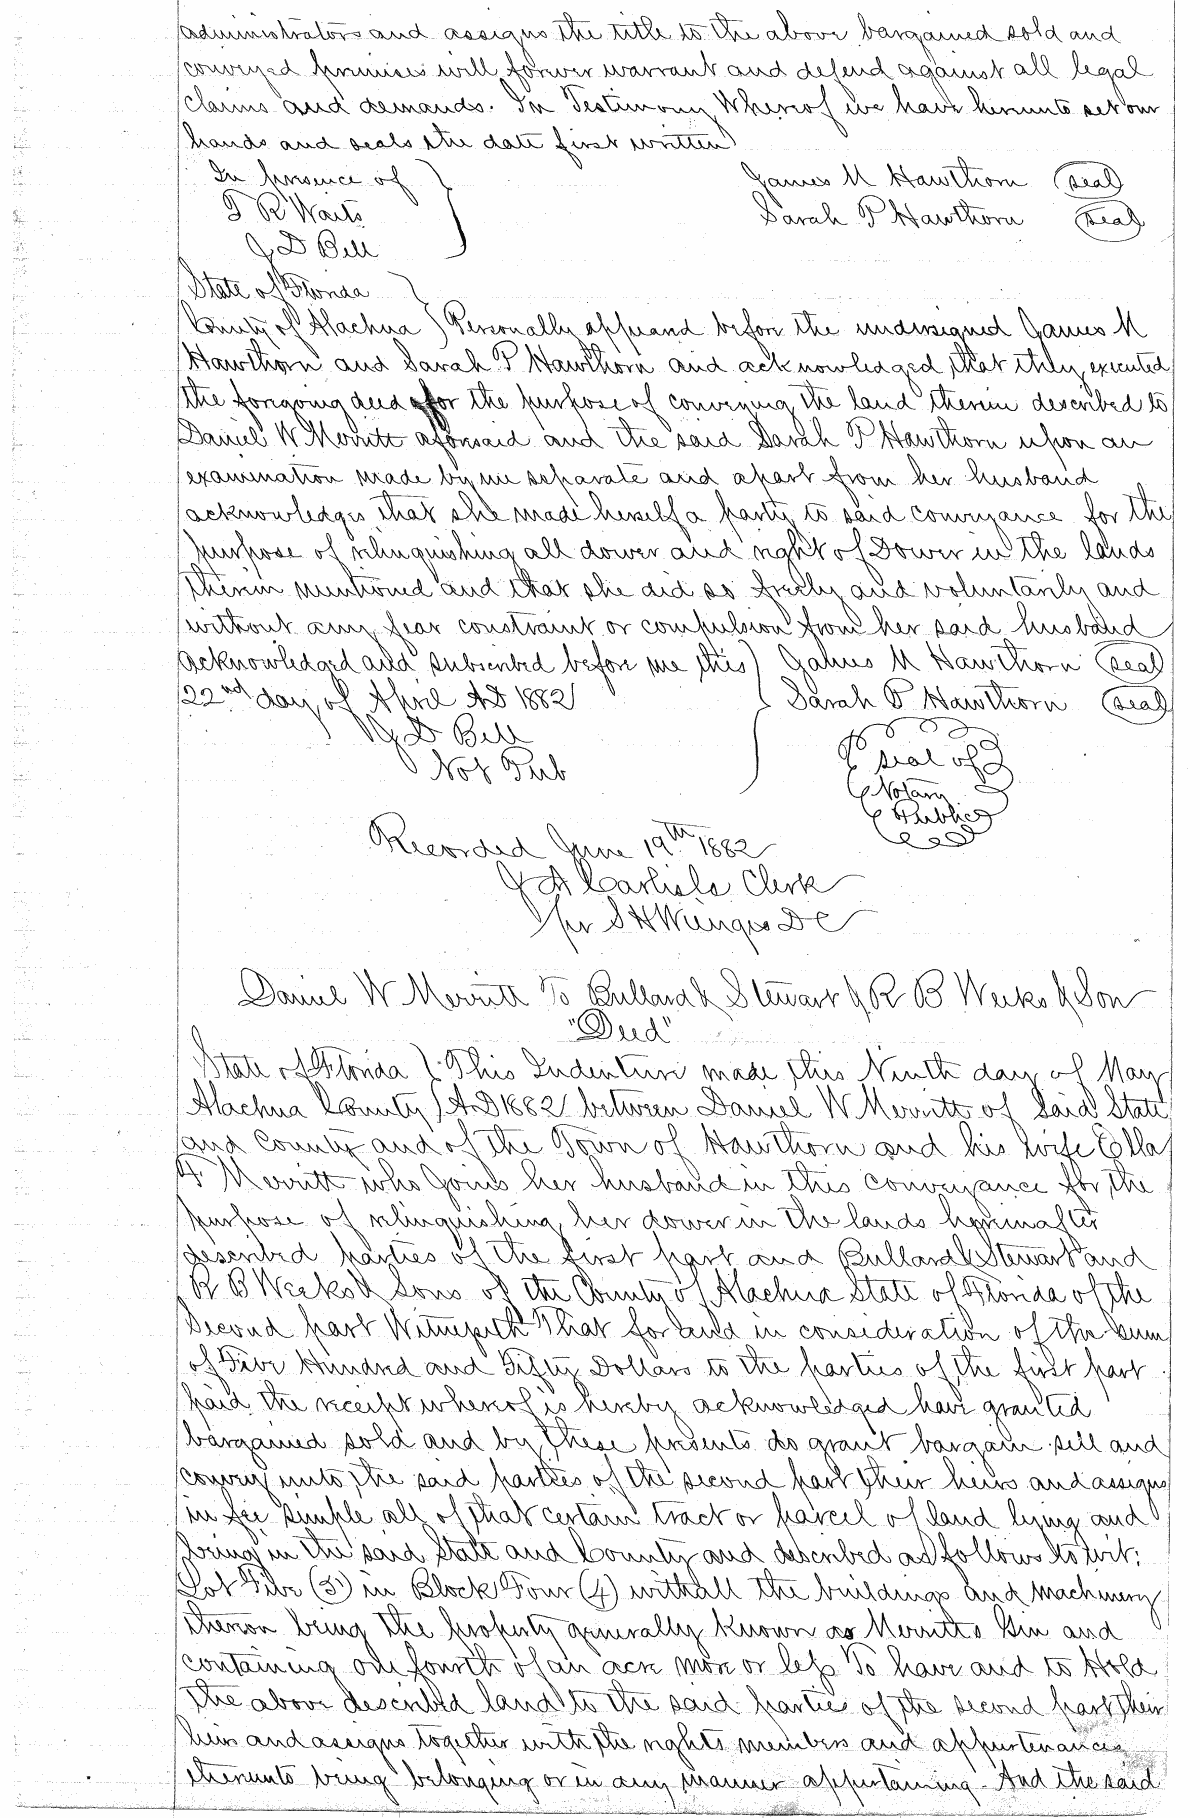 administrators and assigns the title to the above bargained sold and
conveyed premises will forever warrant and defend against all legal
claims and demands. In Testimony Whereof we have hereunto set our
hands and seals the date first written
In presence of
T R Waits
J D Bell
James M Hawthorn (seal)
Sarah P Hawthorn (seal)
State of Florida
County of Alachua } Personally appeared before the undersigned James M
Hawthorn and Sarah P Hawthorn and acknowledged that they executed
the foregoing deed for the purpose of conveying the land therein described to
Daniel W Merritt aforesaid and the said Sarah P Hawthorn upon an
examination made by me separate and apart from her husband
acknowledges that she made herself a party to said conveyance for the
purpose of relinquishing all dower and right of Dower in the lands
therein mentioned and that she did so freely and voluntarily and
without any fear constraint or compulsion from her said husband
Acknowledged and subscribed before me this } James M Hawthorn (seal)
22nd day of April AD 1882 } Sarah P Hawthorn (seal)
J D Bell
Not Pub
seal of
Notary
Public
Recorded June 19th 1882
J A Carlisle Clerk
per S H Wienges D C
Daniel W Merritt To Bullard & Stewart & R B Weeks & Son
"Deed"
State of Florida } This Indenture made this Ninth day of May
Alachua County } A.D 1882 between Daniel W Merritt of said State
and County and of the Town of Hawthorn and his wife Ella
F Merritt who joins her husband in this conveyance for the
purpose of relinquishing her dower in the lands hereinafter
described parties of the first part and Bullard & Stewart and
R B Weeks & Sons of the County of Alachua State of Florida of the
Second part Witnesseth That for and in consideration of the sum
of Five Hundred and Fifty Dollars to the parties of the first part
paid the receipt whereof is hereby acknowledged have granted
bargained sold and by these presents do grant bargain sell and
convey unto the said parties of the second part their heirs and assigns
in fee simple all of that certain tract or parcel of land lying and
being in the said State and County and described as follows to wit:
Lot Five (5) in Block Four (4) with all the buildings and machinery
thereon being the property generally known as Merritts Gin and
containing one fourth of an acre more or less To have and to Hold
the above described land to the said parties of the second part their
heirs and assigns together with the rights members and appurtenances
thereunto being belonging or in any manner appertaining. And the said